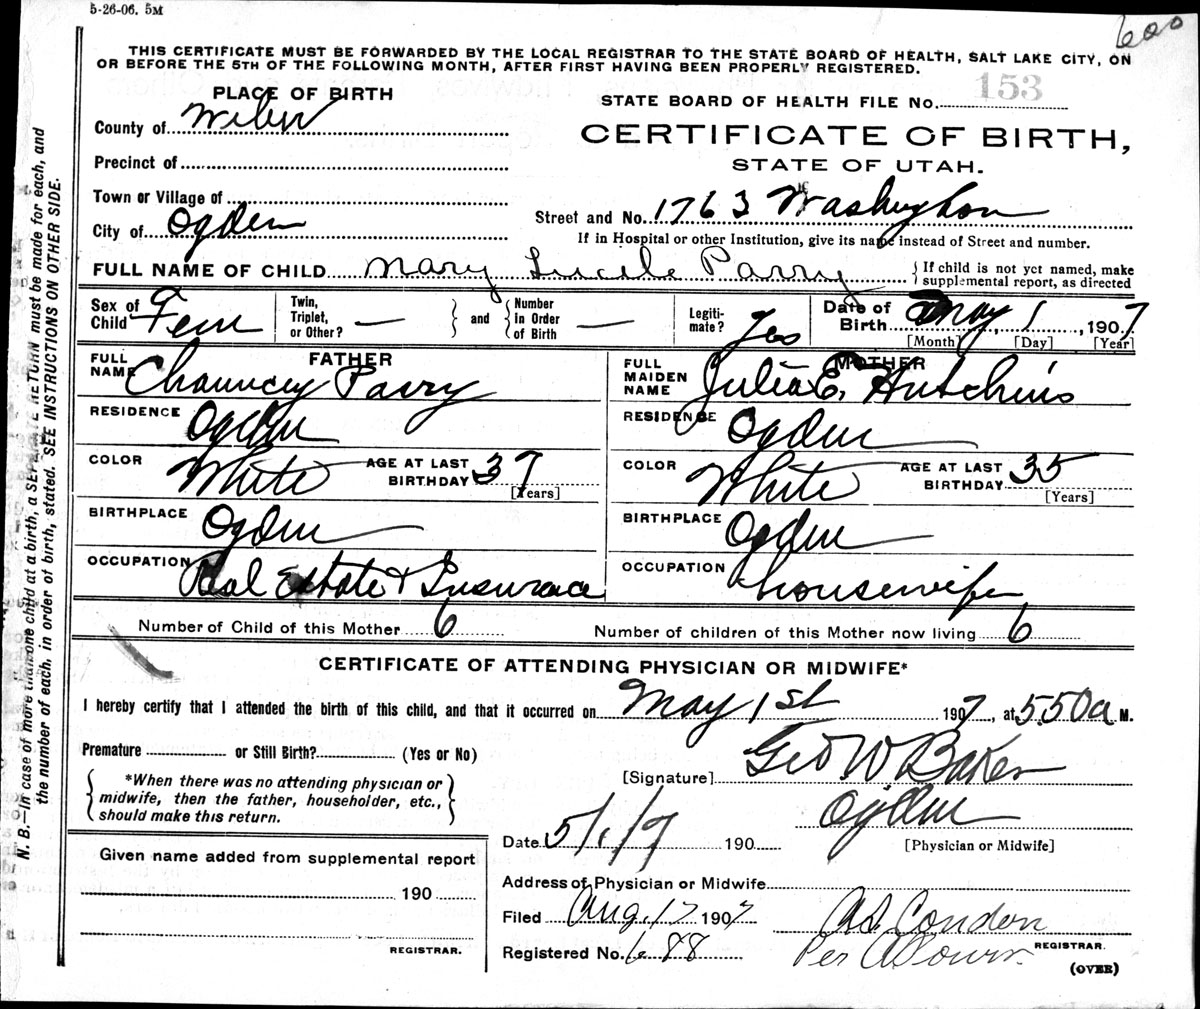 5-26-06. 5M
600
THIS CERTIFICATE MUST BE FORWARDED BY THE LOCAL REGISTRAR TO THE STATE BOARD OF HEALTH, SALT LAKE CITY, ON
OR BEFORE THE 5TH OF THE FOLLOWING MONTH, AFTER FIRST HAVING BEEN PROPERLY REGISTERED.
PLACE OF BIRTH
County of Weber
Precinct of
Town or Village of
City of Ogden
STATE BOARD OF HEALTH FILE No. 153
CERTIFICATE OF BIRTH,
STATE OF UTAH.
Street and No. 1763 Washington
If in Hospital or other Institution, give its name instead of Street and number.
FULL NAME OF CHILD Mary Lucile Parry { If child is not yet named, make
supplemental report, as directed
Sex of Child Fem
Twin, Triplet, or Other? —
and
Number in Order of Birth —
Legiti-mate? Yes
Date of Birth May 1, 1907
[Month] [Day] [Year]
FATHER
FULL NAME Chauncey Parry
RESIDENCE Ogden
COLOR White AGE AT LAST BIRTHDAY 37
[Years]
BIRTHPLACE Ogden
OCCUPATION Real Estate & Insurance
MOTHER
FULL MAIDEN NAME Julia E. Hutchins
RESIDENCE Ogden
COLOR White AGE AT LAST BIRTHDAY 35
[Years]
BIRTHPLACE Ogden
OCCUPATION housewife
Number of Child of this Mother 6 Number of children of this Mother now living 6
CERTIFICATE OF ATTENDING PHYSICIAN OR MIDWIFE*
I hereby certify that I attended the birth of this child, and that it occurred on May 1st 1907, at 5.50a M.
Premature or Still Birth? (Yes or No)
*When there was no attending physician or
midwife, then the father, householder, etc.,
should make this return.
[Signature] Geo W Baker
Ogden
[Physician or Midwife]
Date 5/1/7 190
Given name added from supplemental report
190
REGISTRAR.
Address of Physician or Midwife
Filed Aug. 17 1907
Registered No. 688
A S Condon
Per
REGISTRAR.
(OVER)
N. B.—In case of more than one child at a birth, a SEPARATE RETURN must be made for each, and
the number of each, in order of birth, stated. SEE INSTRUCTIONS ON OTHER SIDE.